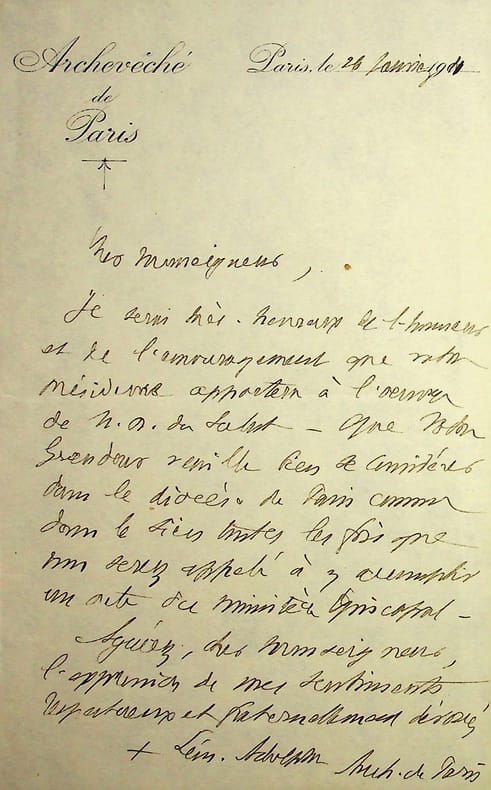 Archevêché
de
Paris
Paris, le 26 Janvier 1911
Cher Monseigneur,
Je serai très-heureux de l'honneur
et de l'encouragement que votre
présidence apportera à l'oeuvre
de N. D. du Salut – Que Votre
Grandeur veuille bien se considérer
dans le diocèse de Paris comme
dans le sien toutes les fois que
vous serez appelé à y accomplir
un acte du ministère Episcopal –
Agréez, cher Monseigneur,
l'expression de mes sentiments
respectueux et fraternellement dévoués
+ Léon. Adolphe Arch. de Paris